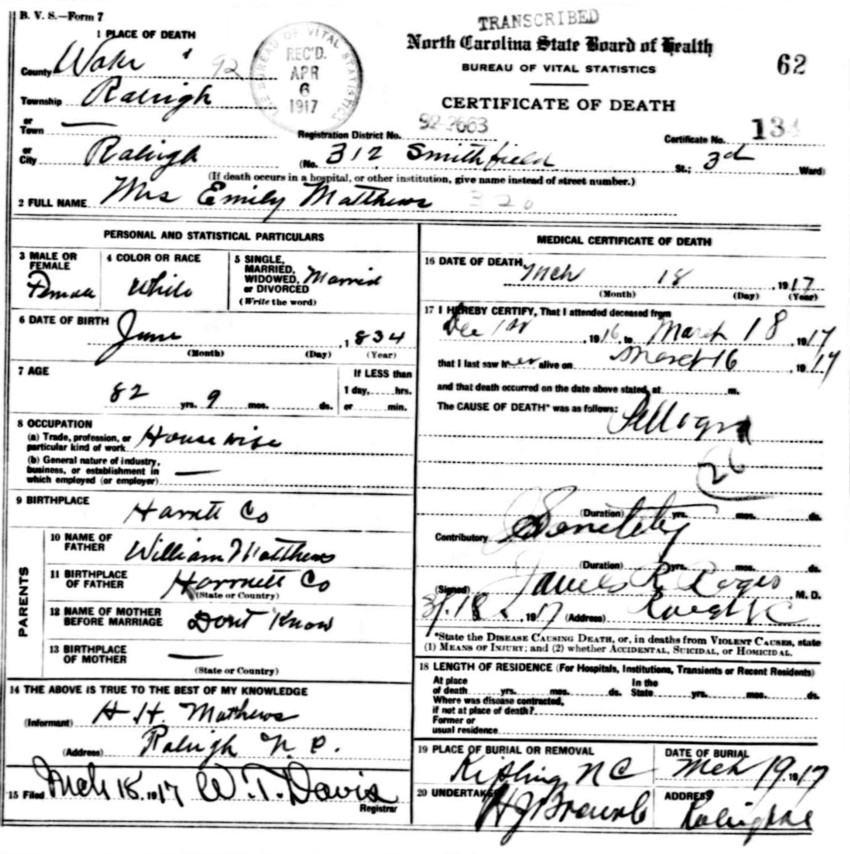 B. V. S.—Form 7
TRANSCRIBED
North Carolina State Board of Health
BUREAU OF VITAL STATISTICS
62
CERTIFICATE OF DEATH
BUREAU OF VITAL STATISTICS
REC'D.
APR
6
1917
1 PLACE OF DEATH
County Wake 92
Township Raleigh
or
Town —
or
City Raleigh
Registration District No. 92-2663 Certificate No. 134
(No. 312 Smithfield St.; 3d Ward)
(If death occurs in a hospital, or other institution, give name instead of street number.)
2 FULL NAME Mrs Emily Matthews 320
PERSONAL AND STATISTICAL PARTICULARS
3 MALE OR FEMALE Female
4 COLOR OR RACE White
5 SINGLE, MARRIED, WIDOWED, or DIVORCED Married
(Write the word)
6 DATE OF BIRTH June , 1834
(Month) (Day) (Year)
7 AGE 82 yrs. 9 mos. ds.
If LESS than
1 day, hrs.
or min.
8 OCCUPATION
(a) Trade, profession, or particular kind of work Housewife
(b) General nature of industry, business, or establishment in which employed (or employer) —
9 BIRTHPLACE
Harnett Co
PARENTS
10 NAME OF FATHER William Matthews
11 BIRTHPLACE OF FATHER Harnett Co
(State or Country)
12 NAME OF MOTHER BEFORE MARRIAGE Dont Know
13 BIRTHPLACE OF MOTHER —
(State or Country)
14 THE ABOVE IS TRUE TO THE BEST OF MY KNOWLEDGE
(Informant) H H. Mathews
(Address) Raleigh N. C.
15 Filed Mch 18, 1917 W. T. Davis
Registrar
MEDICAL CERTIFICATE OF DEATH
16 DATE OF DEATH Mch 18 , 1917
(Month) (Day) (Year)
17 I HEREBY CERTIFY, That I attended deceased from
Dec 1st , 1916, to March 18, 1917
that I last saw her alive on March 16 1917
and that death occurred on the date above stated, at m.
The CAUSE OF DEATH* was as follows:
Pellagra
26
(Duration) yrs. mos. ds.
Contributory Senility
(Duration) yrs. mos. ds.
(Signed) James R. Rogers M. D.
3/18, 1917 (Address) Raleigh NC
*State the DISEASE CAUSING DEATH, or, in deaths from VIOLENT CAUSES, state
(1) MEANS OF INJURY; and (2) whether ACCIDENTAL, SUICIDAL, or HOMICIDAL.
18 LENGTH OF RESIDENCE (For Hospitals, Institutions, Transients or Recent Residents)
At place of death yrs. mos. ds. In the State yrs. mos. ds.
Where was disease contracted,
if not at place of death?
Former or
usual residence
19 PLACE OF BURIAL OR REMOVAL
Kipling NC
DATE OF BURIAL
Mch 19, 1917
20 UNDERTAKER
H J Brown Co
ADDRESS
Raleigh NC